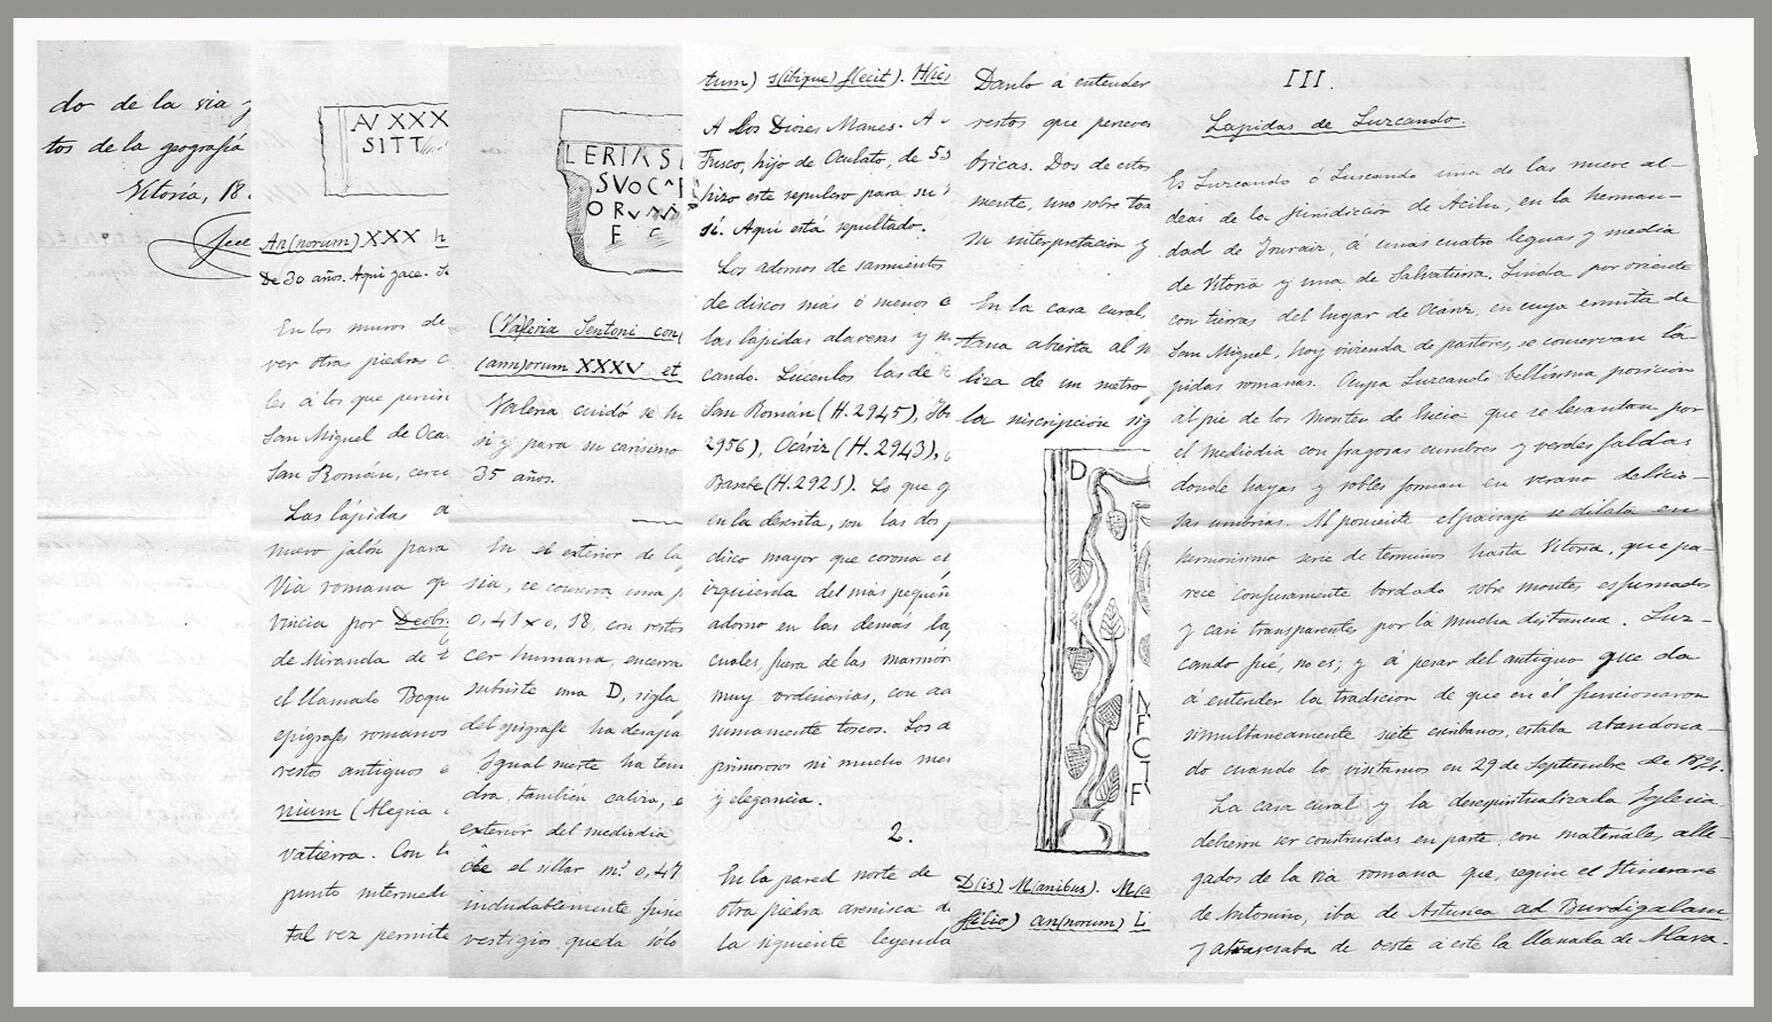 do de la via y
tos de la geografía
Vitoria, 18
AV XXX
SITT
An(norum) XXX h
De 30 años. Aquí yace. S
En los muros de
ver otras piedras c
les á los que
San Miguel de Oca
San Román, cerca
Las lápidas a
nuevo jalón para
Via romana q
vincia por Deobr
de Miranda de
el llamado Boqu
epígrafes romanos
restos antiguos
nium (Alegria
vatierra. Con t
punto intermedi
tal vez permite
LERIAS
SVOCA
ORVM
F C
(Va)leria Sentoni con
(ann)orum XXXV et
Valeria cuidó se h
si y para su carísimo
35 años.
En el exterior de la
sia, se conserva una p
0,41 x 0,18, con restos
cer humana, encerra
subsiste una D, sigla
del epígrafe ha desapa
Igual suerte ha teni
dra, también caliza, e
exterior del mediodia
de el sillar m.s 0,47
indudablemente fune
vestigios queda sólo
tum) s(ibique) f(ecit). H(ic
A los Dioses Manes. A
Fusco, hijo de Oculato, de 55
hizo este sepulcro para su
sí. Aquí está sepultado.
Los adornos de sarmientos
de discos más ó menos
las lápidas alavesas y m
cando. Lúcenlos las de
San Román (H. 2945), Ib
2956), Ocáriz (H. 2943),
Basabe (H. 2925). Lo que
en la descrita, son las dos
disco mayor que corona el
izquierda del más pequeñ
adorno en las demás la
cuales, fuera de las marmór
muy ordinarias, son
sumamente toscos. Los a
primorosos ni mucho men
y elegancia.
2.
En la pared norte de
otra piedra arenisca d
la siguiente leyenda
Danlo á entender
restos que perseve
bricas. Dos de estos
mente, uno sobre toa
su interpretación y
En la casa cural,
tana abierta al
liza de un metro
la inscripción sig
D
M
F
C
I
F
D(is) M(anibus). M(a
filio) an(norum) L
III.
Lápidas de Luzcando.
Es Luzcando ó Luscando una de las nueve al-
deas de la jurisdicción de Acilu, en la herman-
dad de Iruraiz, á unas cuatro leguas y media
de Vitoria y una de Salvatierra. Linda por oriente
con tierras del lugar de Ocáriz, en cuya ermita de
San Miguel, hoy vivienda de pastores, se conservan lá-
pidas romanas. Ocupa Luzcando bellísima posición
al pie de los montes de Encia que se levantan por
el mediodia con fragosas cumbres y verdes faldas
donde hayas y robles forman en verano delicio-
sas umbrias. Al poniente el paisaje se dilata en
hermosisima serie de terminos hasta Vitoria, que pa-
rece confusamente bordado sobre montes esfumados
y casi transparentes por la mucha distancia. Luz-
cando fué, no es; y á pesar del antiguo que da
á entender la tradición de que en él funcionaron
simultáneamente siete escribanos, estaba abandona-
do cuando lo visitamos en 29 de Septiembre de
La casa cural y la desespiritualizada Iglesia
debieron ser construidas en parte con materiales alle-
gados de la via romana que, según el Itinerario
de Antonino, iba de Asturica ad Burdigalam
y atravesaba de oeste á este la llanada de Alava.